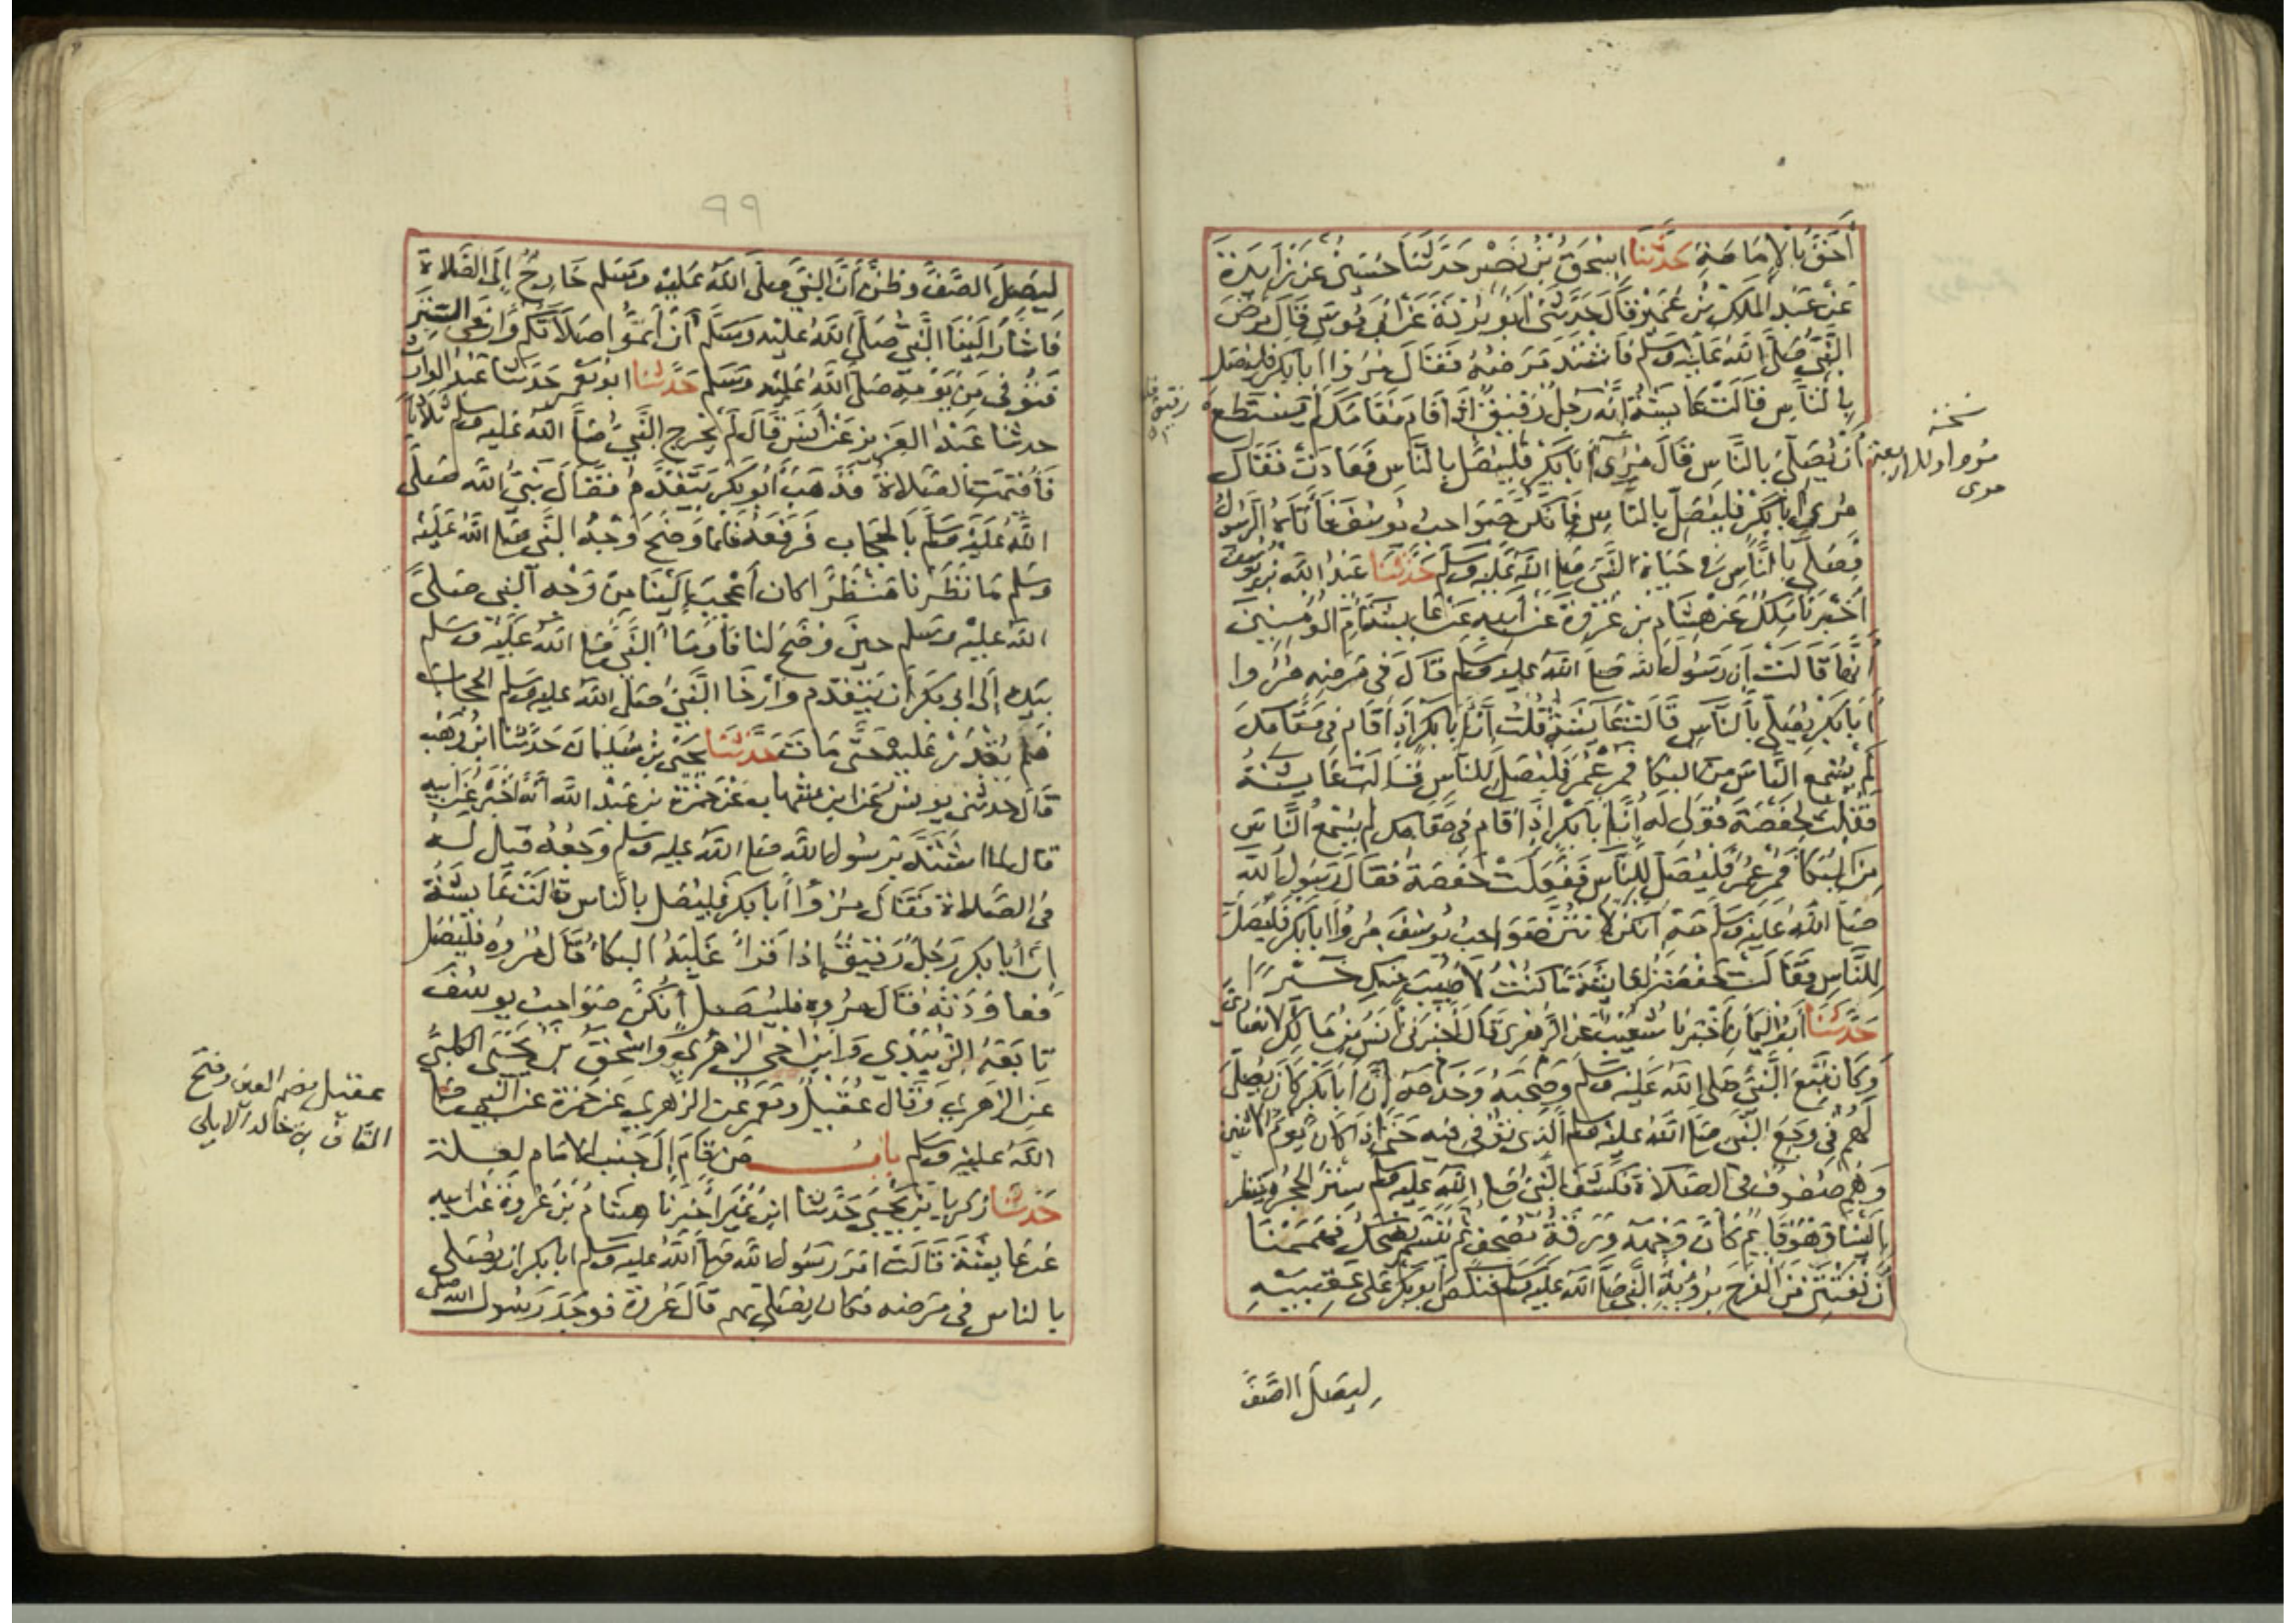 أَحَقُّ بِالْإِمَامَةِ حَدَّثَنَا إِسْحَقُ بْنُ نَصْرٍ حَدَّثَنَا حُسَيْنٌ عَنْ زَايِدَةَ
عَنْ عَبْدِ الْمَلِكِ بْنِ عُمَيْرٍ قَالَ حَدَّثَنِي أَبُو بُرْدَةَ عَنْ أَبِي مُوسَى قَالَ مَرِضَ
النَّبِيُّ صَلَّى اللَّهُ عَلَيْهِ وَسَلَّمَ فَاشْتَدَّ مَرَضُهُ فَقَالَ مُرُوا أَبَا بَكْرٍ فَلْيُصَلِّ
بِالنَّاسِ فَقَالَتْ عَايِشَةُ إِنَّهُ رَجُلٌ رَقِيقٌ إِذَا قَامَ مَقَامَكَ لَمْ يَسْتَطِعْ
أَنْ يُصَلِّيَ بِالنَّاسِ فَقَالَ مُرِي أَبَا بَكْرٍ فَلْيُصَلِّ بِالنَّاسِ فَعَادَتْ فَقَالَ
مُرِي أَبَا بَكْرٍ فَلْيُصَلِّ بِالنَّاسِ فَإِنَّكُنَّ صَوَاحِبُ يُوسُفَ فَأَتَاهُ الرَّسُولُ
فَصَلَّى بِالنَّاسِ فِي حَيَاةِ النَّبِيِّ صَلَّى اللَّهُ عَلَيْهِ وَسَلَّمَ حَدَّثَنَا عَبْدُ اللَّهِ بْنُ يُوسُفَ
أَخْبَرَنَا مَلِكٌ عَنْ هِشَامِ بْنِ عُرْوَةَ عَنْ أَبِيهِ عَنْ عَايِشَةَ أُمِّ الْمُؤْمِنِينَ
أَنَّهَا قَالَتْ إِنَّ رَسُولَ اللَّهِ صَلَّى اللَّهُ عَلَيْهِ وَسَلَّمَ قَالَ فِي مَرَضِهِ مُرُوا
أَبَا بَكْرٍ يُصَلِّي بِالنَّاسِ قَالَتْ عَايِشَةُ قُلْتُ إِنَّ أَبَا بَكْرٍ إِذَا قَامَ فِي مَقَامِكَ
لَمْ يُسْمِعِ النَّاسَ مِنَ الْبُكَا فَمُرْ عُمَرَ فَلْيُصَلِّ لِلنَّاسِ فَقَالَتْ عَايِشَةُ
فَقُلْتُ لِحَفْصَةَ قُولِي لَهُ إِنَّ أَبَا بَكْرٍ إِذَا قَامَ فِي مَقَامِكَ لَمْ يُسْمِعِ النَّاسَ
مِنَ الْبُكَا فَمُرْ عُمَرَ فَلْيُصَلِّ لِلنَّاسِ فَفَعَلَتْ حَفْصَةُ فَقَالَ رَسُولُ اللَّهِ
صَلَّى اللَّهُ عَلَيْهِ وَسَلَّمَ مَهْ إِنَّكُنَّ لَأَنْتُنَّ صَوَاحِبُ يُوسُفَ مُرُوا أَبَا بَكْرٍ فَلْيُصَلِّ
لِلنَّاسِ فَقَالَتْ حَفْصَةُ لِعَايِشَةَ مَا كُنْتُ لِأُصِيبَ مِنْكِ خَيْرًا
حَدَّثَنَا أَبُو الْيَمَانِ أَخْبَرَنَا شُعَيْبٌ عَنِ الزُّهْرِيِّ قَالَ أَخْبَرَنِي أَنَسُ بْنُ مَالِكٍ الْأَنْصَارِيُّ
وَكَانَ تَبِعَ النَّبِيَّ صَلَّى اللَّهُ عَلَيْهِ وَسَلَّمَ وَصَحِبَهُ وَخَدَمَهُ أَنَّ أَبَا بَكْرٍ كَانَ يُصَلِّي
لَهُمْ فِي وَجَعِ النَّبِيِّ صَلَّى اللَّهُ عَلَيْهِ وَسَلَّمَ الَّذِي تُوُفِّيَ فِيهِ حَتَّى إِذَا كَانَ يَوْمُ الِاثْنَيْنِ
وَهُمْ صُفُوفٌ فِي الصَّلَاةِ فَكَشَفَ النَّبِيُّ صَلَّى اللَّهُ عَلَيْهِ وَسَلَّمَ سِتْرَ الْحُجْرَةِ يَنْظُرُ
إِلَيْنَا وَهُوَ قَايِمٌ كَأَنَّ وَجْهَهُ وَرَقَةُ مُصْحَفٍ ثُمَّ تَبَسَّمَ يَضْحَكُ فَهَمَمْنَا
أَنْ نَفْتَتِنَ مِنَ الْفَرَحِ بِرُؤْيَةِ النَّبِيِّ صَلَّى اللَّهُ عَلَيْهِ وَسَلَّمَ فَنَكَصَ أَبُو بَكْرٍ عَلَى عَقِبَيْهِ
لِيَصِلَ الصَّفَّ
نسخة
رقيق
٩٩
لِيَصِلَ الصَّفَّ وَظَنَّ أَنَّ النَّبِيَّ صَلَّى اللَّهُ عَلَيْهِ وَسَلَّم خَارِجٌ إِلَى الصَّلَاةِ
فَأَشَارَ إِلَيْنَا النَّبِيُّ صَلَّى اللَّهُ عَلَيْهِ وَسَلَّمَ أَنْ أَتِمُّوا صَلَاتَكُمْ وَأَرْخَى السِّتْرَ
فَتُوُفِّيَ مِنْ يَوْمِهِ صَلَّى اللَّهُ عَلَيْهِ وَسَلَّم حَدَّثَنَا أَبُو مَعْمَرٍ حَدَّثَنَا عَبْدُ الْوَارِثِ
حدثنا عَبْدُ الْعَزِيزِ عَنْ أَنَسٍ قَالَ لَمْ يَخْرُجِ النَّبِيُّ صَلَّى اللَّهُ عَلَيْهِ وَسَلَّم ثَلَاثًا
فَأُقِيمَتِ الصَّلَاةُ فَذَهَبَ أَبُو بَكْرٍ يَتَقَدَّمُ فَقَالَ نَبِيُّ اللَّهِ صَلَّى
اللَّهُ عَلَيْهِ وَسَلَّم بِالْحِجَابِ فَرَفَعَهُ فَلَمَّا وَضَحَ وَجْهُ النَّبِيِّ صَلَّى اللَّهُ عَلَيْهِ
وَسَلَّم مَا نَظَرْنَا مَنْظَرًا كَانَ أَعْجَبَ إِلَيْنَا مِنْ وَجْهِ النَّبِيِّ صَلَّى
اللَّهُ عَلَيْهِ وَسَلَّم حِينَ وَضَحَ لَنَا فَأَوْمَأَ النَّبِيُّ صَلَّى اللَّهُ عَلَيْهِ وَسَلَّم
بِيَدِهِ إِلَى أَبِي بَكْرٍ أَنْ يَتَقَدَّمَ وَأَرْخَا النَّبِيُّ صَلَّى اللَّهُ عَلَيْهِ وَسَلَّم الْحِجَابَ
فَلَمْ يُقْدَرْ عَلَيْهِ حَتَّى مَاتَ حَدَّثَنَا يَحْيَى بْنُ سُلَيْمَانَ حَدَّثَنَا ابْنُ وَهْبٍ
قَالَ حَدَّثَنِي يُونُسُ عَنِ ابْنِ شِهَابٍ عَنْ حَمْزَةَ بْنِ عَبْدِ اللَّهِ أَنَّهُ أَخْبَرَهُ عَنْ أَبِيهِ
قَالَ لَمَّا اشْتَدَّ بِرَسُولِ اللَّهِ صَلَّى اللَّهُ عَلَيْهِ وَسَلَّم وَجَعُهُ قِيلَ لَهُ
فِي الصَّلَاةِ فَقَالَ مُرُوا أَبَا بَكْرٍ فَلْيُصَلِّ بِالنَّاسِ قَالَتْ عَايِشَةُ
إِنَّ أَبَا بَكْرٍ رَجُلٌ رَقِيقٌ إِذَا قَرَأَ غَلَبَهُ الْبُكَاءُ قَالَ مُرُوهُ فَلْيُصَلِّ
فَعَاوَدَتْهُ فَقَالَ مُرُوهُ فَلْيُصَلِّ إِنَّكُنَّ صَوَاحِبُ يُوسُفَ
تَابَعَهُ الزُّبَيْدِيُّ وَابْنُ أَخِي الزُّهْرِيِّ وَإِسْحَقُ بْنُ يَحْيَى الْكَلْبِيُّ
عَنِ الزُّهْرِيِّ وَقَالَ عُقَيْلٌ وَمَعْمَرٌ عَنِ الزُّهْرِيِّ عَنْ حَمْزَةَ عَنِ النَّبِيِّ صَلَّى
اللَّهُ عَلَيْهِ وَسَلَّم بَابُ مَنْ قَامَ إِلَى جَنْبِ الْإِمَامِ لِعِلَّةٍ
حَدَّثَنَا زَكَرِيَّا بْنُ يَحْيَى حَدَّثَنَا ابْنُ نُمَيْرٍ أَخْبَرَنَا هِشَامُ بْنُ عُرْوَةَ عَنْ أَبِيهِ
عَنْ عَايِشَةَ قَالَتْ أَمَرَ رَسُولُ اللَّهِ صَلَّى اللَّهُ عَلَيْهِ وَسَلَّم أَبَا بَكْرٍ أَنْ يُصَلِّيَ
بِالنَّاسِ فِي مَرَضِهِ فَكَانَ يُصَلِّي بِهِمْ قَالَ عُرْوَةُ فَوَجَدَ رَسُولُ اللَّهِ صَلَّى
عقيل بضم العين وفتح
القاف بن خالد الايلي